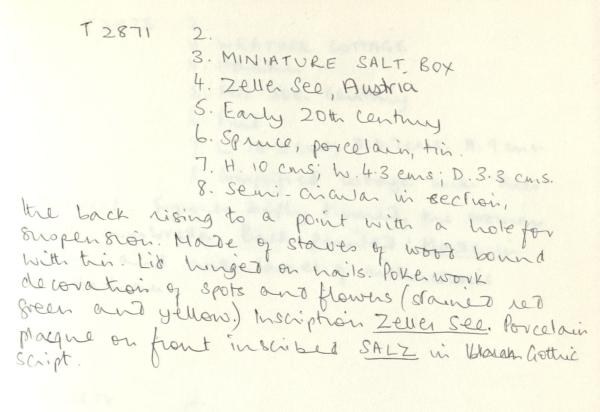 T 2871 2.
3. MINIATURE SALT BOX
4. Zeller See, Austria
5. Early 20th Century
6. Spruce, porcelain, tin.
7. H. 10 cms; W. 4.3 cms; D. 3.3 cms.
8. Semi-circular in section,
the back rising to a point with a hole for
suspension. Made of staves of wood bound
with tin. Lid hinged on nails. Pokerwork
decoration of spots and flowers (stained red
green and yellow.) Inscription Zeller See. Porcelain
plaque on front inscribed SALZ in Gothic
script.